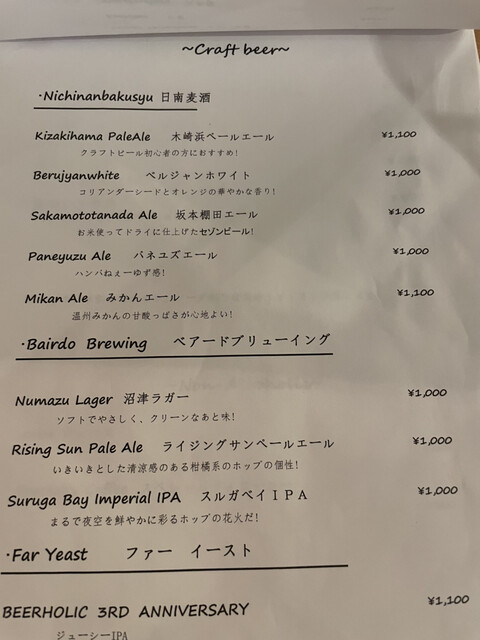 ~Craft beer~
·Nichinanbakusyu 日南麦酒
Kizakihama PaleAle 木崎浜ペールエール ¥1,100
クラフトビール初心者の方におすすめ!
Berujyanwhite ベルジャンホワイト ¥1,000
コリアンダーシードとオレンジの華やかな香り!
Sakamototanada Ale 坂本棚田エール ¥1,000
お米使ってドライに仕上げたセゾンビール!
Paneyuzu Ale パネユズエール ¥1,000
ハンパねぇーゆず感!
Mikan Ale みかんエール ¥1,100
温州みかんの甘酸っぱさが心地よい!
·Bairdo Brewing ベアードブリューイング
Numazu Lager 沼津ラガー ¥1,000
ソフトでやさしく、クリーンなあと味!
Rising Sun Pale Ale ライジングサンペールエール ¥1,000
いきいきとした清涼感のある柑橘系のホップの個性!
Suruga Bay Imperial IPA スルガベイIPA ¥1,000
まるで夜空を鮮やかに彩るホップの花火だ!
·Far Yeast ファー イースト
BEERHOLIC 3RD ANNIVERSARY ¥1,100
ジューシーIPA